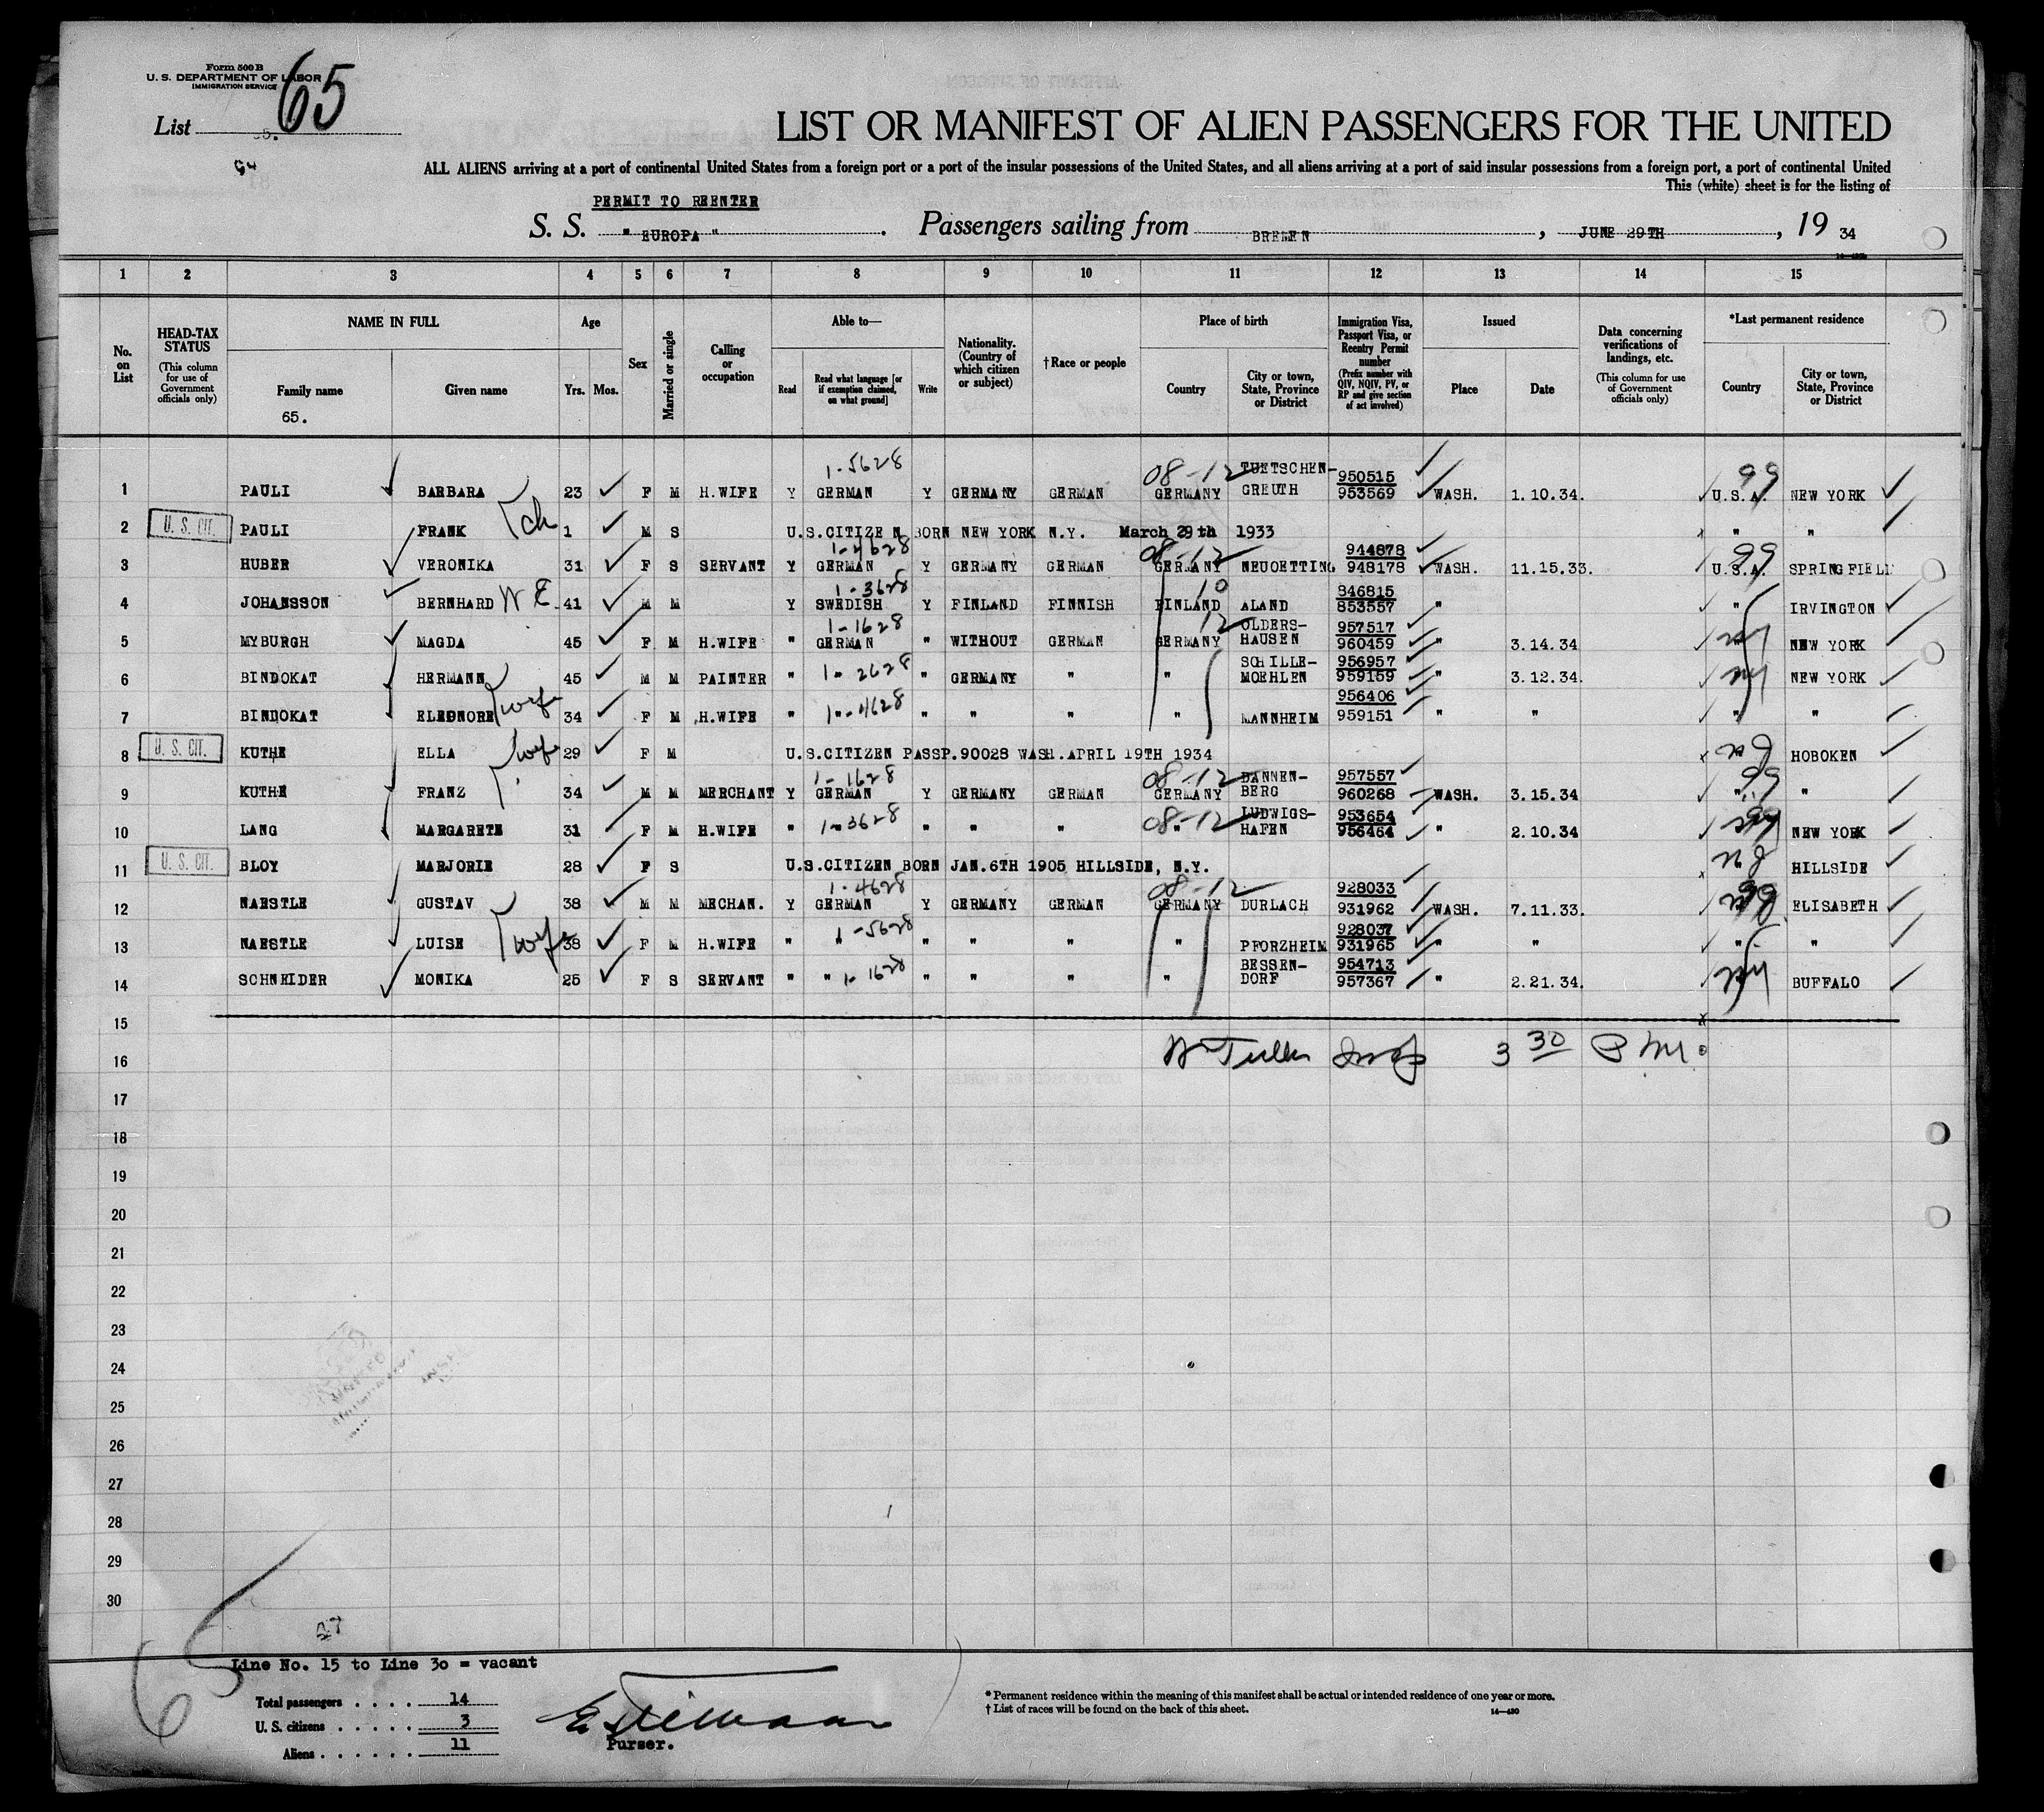 Form 500 B
U. S. DEPARTMENT OF LABOR
IMMIGRATION SERVICE
65
List
LIST OR MANIFEST OF ALIEN PASSENGERS FOR THE UNITED
ALL ALIENS arriving at a port of continental United States from a foreign port or a port of the insular possessions of the United States, and all aliens arriving at a port of said insular possessions from a foreign port, a port of continental United
This (white) sheet is for the listing of
PERMIT TO REENTER
S. S. " EUROPA " . Passengers sailing from BREMEN , JUNE 29TH , 19 34
1 2 3 4 5 6 7 8 9 10 11 12 13 14 15
No. on List
HEAD-TAX STATUS (This column for use of Government officials only)
NAME IN FULL Family name Given name
65.
Age Yrs. Mos.
Sex
Married or single
Calling or occupation
Able to— Read Read what language [or if exemption claimed, on what ground] Write
Nationality. (Country of which citizen or subject)
† Race or people
Place of birth Country City or town, State, Province or District
Immigration Visa, Passport Visa, or Reentry Permit number (Prefix number with QIV, NQIV, PV, or RP and give section of act involved)
Issued Place Date
Data concerning verifications of landings, etc. (This column for use of Government officials only)
*Last permanent residence Country City or town, State, Province or District
1-5628 08-12 TUETSCHEN- 950515 99
1 PAULI BARBARA 23 F M H.WIFE Y GERMAN Y GERMANY GERMAN GERMANY GREUTH 953569 WASH. 1.10.34. U.S.A. NEW YORK
ch
2 U. S. CIT. PAULI FRANK 1 M S U.S.CITIZEN BORN NEW YORK N.Y. March 29th 1933 " "
1-4628 08-12 944878 99
3 HUBER VERONIKA 31 F S SERVANT Y GERMAN Y GERMANY GERMAN GERMANY NEUOETTING 948178 WASH. 11.15.33. U.S.A. SPRINGFIELD
1-3628 10 846815
4 JOHANSSON BERNHARD 41 M M Y SWEDISH Y FINLAND FINNISH FINLAND ALAND 853557 " " IRVINGTON
1-1628 12 OLDERS- 957517
5 MYBURGH MAGDA 45 F M H.WIFE " GERMAN " WITHOUT GERMAN GERMANY HAUSEN 960459 " 3.14.34 NEW YORK
1-2628 SCHILLE- 956957
6 BINDOKAT HERMANN 45 M M PAINTER " " " GERMANY " " MOEHLEN 959159 " 3.12.34. NEW YORK
wife
1-4628 956406
7 BINDOKAT ELEONORE 34 F M H.WIFE " " " " " " MANNHEIM 959151 " " " "
wife
8 U. S. CIT. KUTHE ELLA 29 F M U.S.CITIZEN PASSP.90028 WASH.APRIL 19TH 1934 HOBOKEN
1-1628 08-12 DANNEN- 957557
9 KUTHE FRANZ 34 M M MERCHANT Y GERMAN Y GERMANY GERMAN GERMANY BERG 960268 WASH. 3.15.34 " "
1-3628 08-12 LUDWIGS- 953654
10 LANG MARGARETE 31 F M H.WIFE " " " " " " HAFEN 956464 " 2.10.34 NEW YORK
11 U. S. CIT. BLOY MARJORIE 28 F S U.S.CITIZEN BORN JAN.6TH 1905 HILLSIDE, N.Y. HILLSIDE
1-4628 08-12 928033
12 NAESTLE GUSTAV 38 M M MECHAN. Y GERMAN Y GERMANY GERMAN GERMANY DURLACH 931962 WASH. 7.11.33. ELISABETH
wife
1-5628 928037
13 NAESTLE LUISE 38 F M H.WIFE " " " " " " PFORZHEIM 931965 " " " "
1-1628 BESSEN- 954713
14 SCHNEIDER MONIKA 25 F S SERVANT " " " " " " DORF 957367 " 2.21.34. BUFFALO
15
16 3 30 P M.
17
18
19
20
21
22
23
24
25
26
27
28
29
30
27
65
Line No. 15 to Line 30 = vacant
Total passengers . . . . 14
U. S. citizens . . . . . 3
Aliens . . . . . . 11
Purser.
* Permanent residence within the meaning of this manifest shall be actual or intended residence of one year or more.
† List of races will be found on the back of this sheet.
14—430